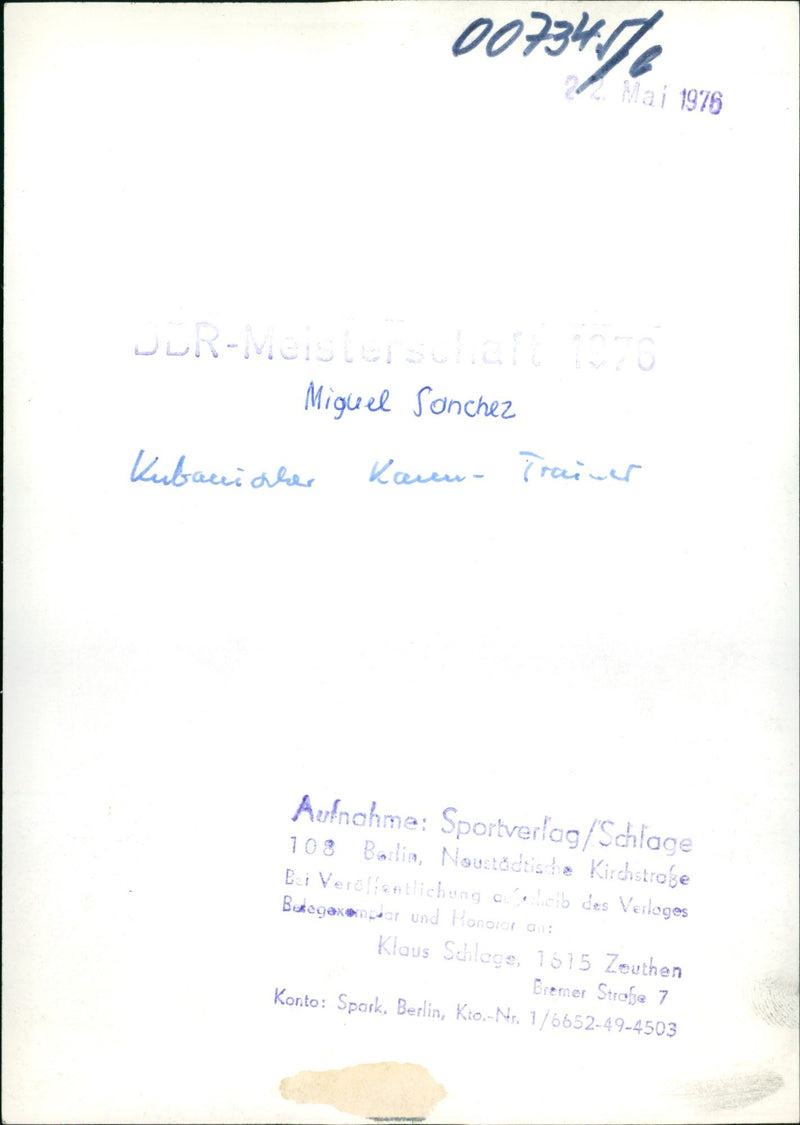 007345/6
22. Mai 1976
DDR-Meisterschaft 1976
Miguel Sanchez
Kubanischer Kanu- Trainer
Aufnahme: Sportverlag/Schlage
108 Berlin, Neustädtische Kirchstraße
Bei Veröffentlichung außerhalb des Verlages
Belegexemplar und Honorar an:
Klaus Schlage, 1615 Zeuthen
Bremer Straße 7
Konto: Spark. Berlin, Kto.-Nr. 1/6652-49-4503